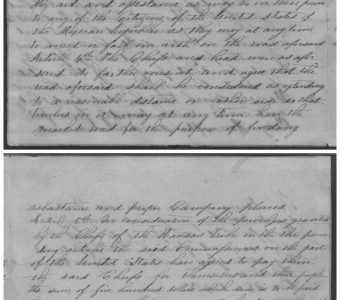 aid and assistance as may be in their power
to any of the Citizens of the United States or
the Mexican Republic as they may at any time
to meet or fall in with on the road aforesaid
Article 4th The Chiefs and head men as afore
said do further consent and agree that the
road aforesaid shall be considered as extending
to a reasonable distance on either side so that
travelers on it may at any time leave the
marked road for the purpose of finding
subsistance and proper Camping places
Article 5th In consideration of the privileges granted
by the Chiefs of the Kansas Tribe in the three
articles the said Commissioners on the part
of the United States have agreed to pay them
the said Chiefs for themselves and their people
the sum of five hundred dollars which sum is to be paid